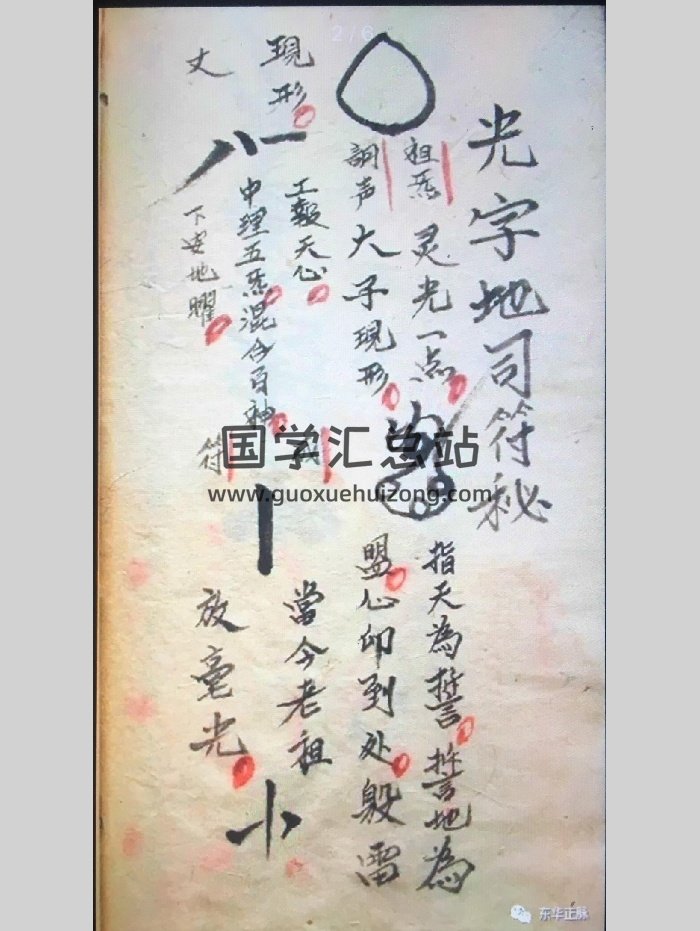 2/6
光字地司符秘
祖炁
灵光一点
調声
大子現形
指天為誓誓地為
盟心印到处毁雷
現形
丈
工報天心
中理五炁混合百神
下安地曜
符
當今老祖
放毫光
国学汇总站
www.guoxuehuizong.com
东华正脉